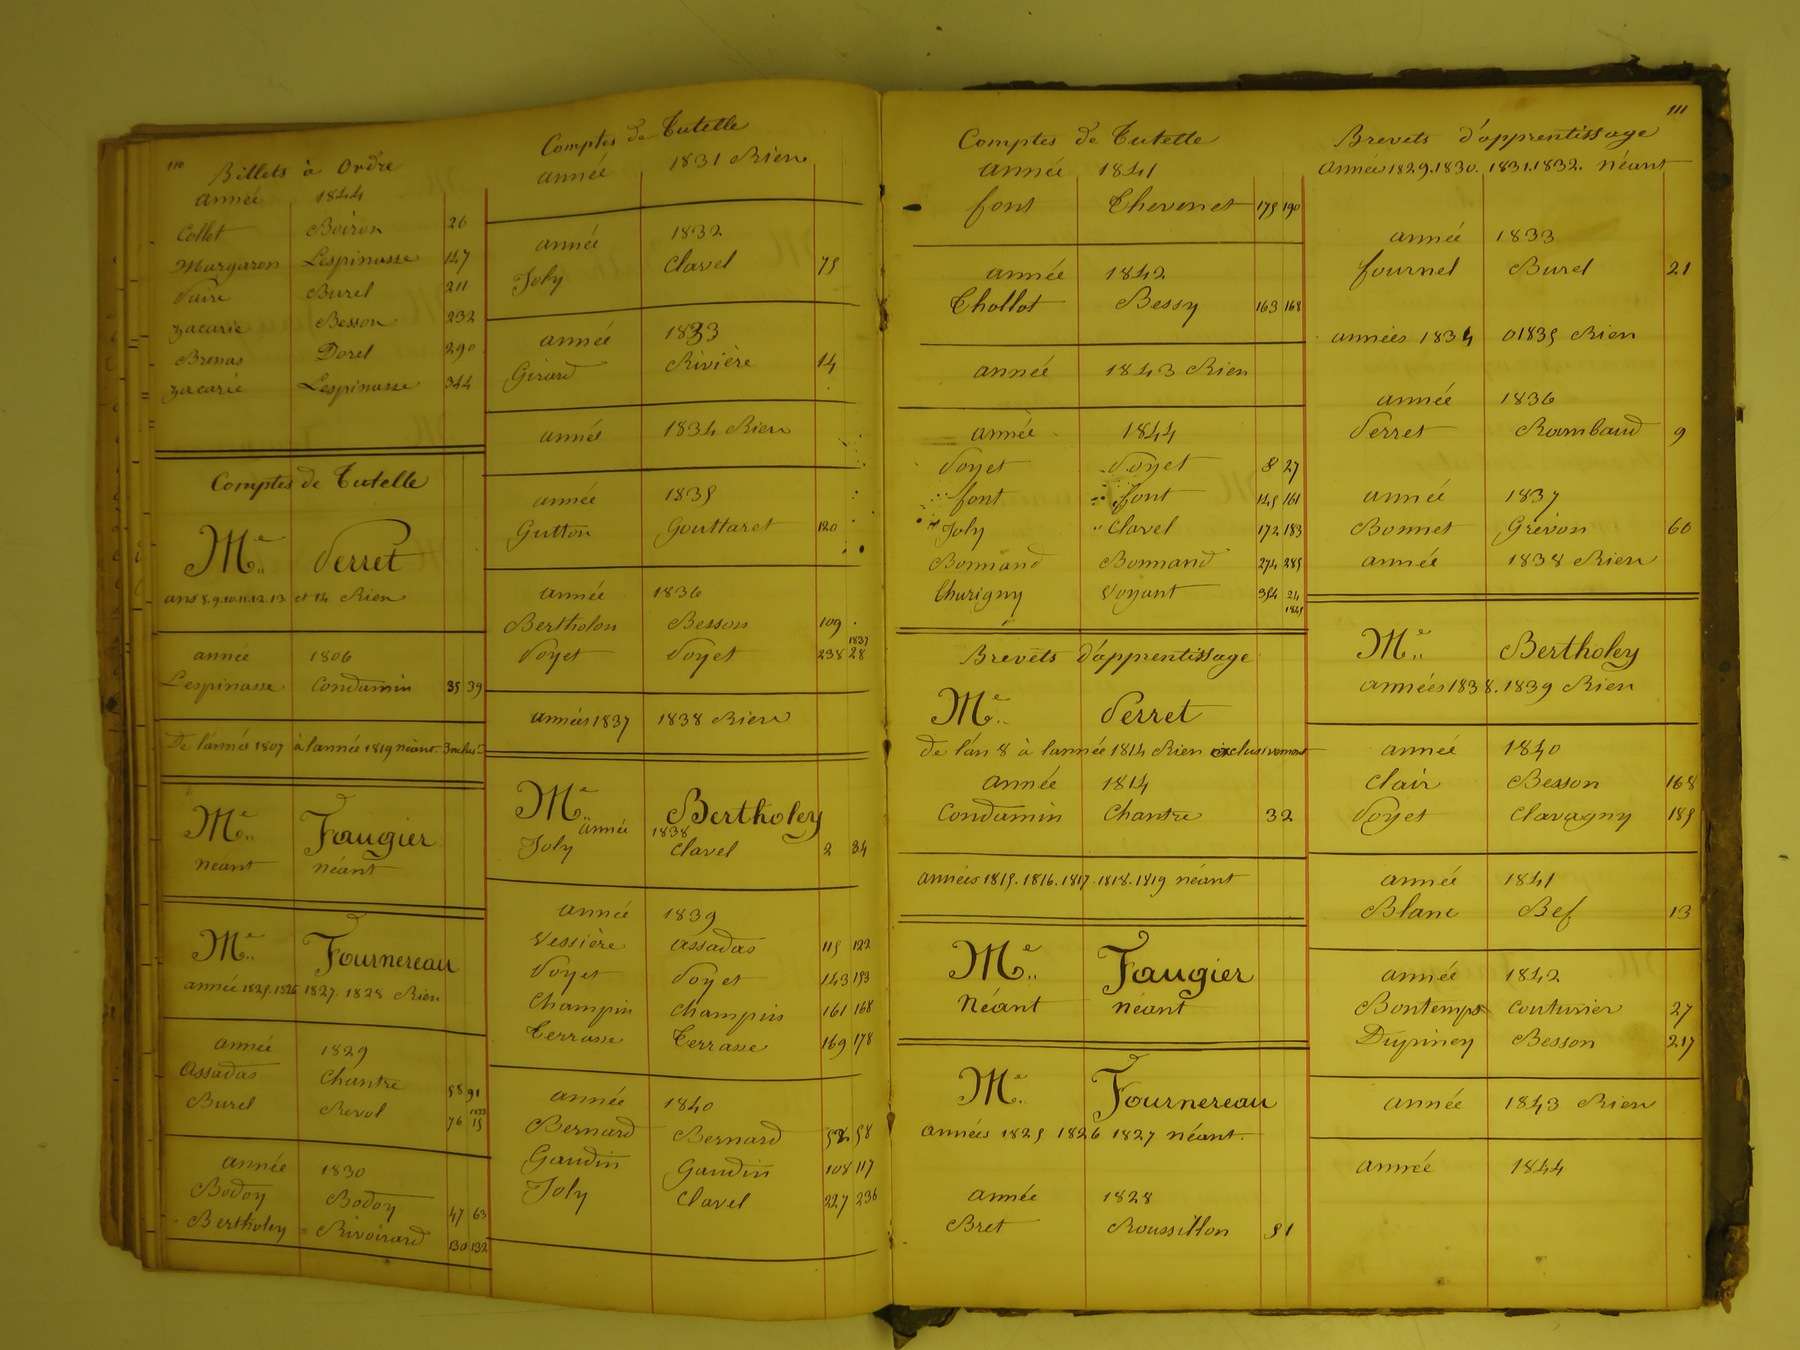 110
Billets à Ordre
année 1844
Collet Boiron 26
Margaron Lespinasse 147
Vaire Burel 211
Zacarie Besson 232
Brenas Dorel 290
Zacarie Lespinasse 344
Comptes de Tutelle
Me Verret
ans 8.9.10.11.12.13 et 14 Rien
année 1806
Lespinasse Condamin 35 39
De l'année 1807 à l'année 1819 néant. Inclus.
Me Faugier
néant néant
Me Fournereau
année 1825.1826 1827. 1828 Rien
année 1829
Assadas Chantre 58 91
Burel Revol 76 1833 15
année 1830
Bodoy Bodoy 47 63
Bertholey Rivoirard 130 132
Comptes de Tutelle
année 1831 Rien
année 1832
Joly Clavel 75
année 1833
Girard Rivière 14
année 1834 Rien
année 1835
Gutton Gouttaret 120
année 1836
Bertholon Besson 109
Voyet Voyet 238 1837 28
années 1837 1838 Rien
Me Bertholey
année 1838
Joly Clavel 2 34
année 1839
Vessière Assadas 115 122
Voyet Voyet 143 153
Champin Champin 161 168
Terrasse Terrasse 169 178
année 1840
Bernard Bernard 52 58
Gaudin Gaudin 108 117
Joly Clavel 227 236
Comptes de Tutelle
année 1841
font Thevenet 175 190
année 1842
Thollot Bessy 163 168
année 1843 Rien
année 1844
Voyet Voyet 8 27
font font 145 161
Joly Clavel 172 183
Bonnand Bonnand 274 285
Churigny Voyant 354 24
1845
Brevets d'apprentissage
Me Verret
de l'an 8 à l'année 1814 Rien exclusivement
année 1814
Condamin Chantre 32
années 1815. 1816. 1817. 1818. 1819 néant
Me Faugier
Néant néant
Me Fournereau
années 1825 1826 1827 néant.
année 1828
Bret Roussillon 51
111
Brevets d'apprentissage
Année 1829.1830. 1831.1832. néant
année 1833
fournel Burel 21
années 1834 1835 Rien
année 1836
Verret Rambaud 9
année 1837
Bonnet Grévon 60
année 1838 Rien
Me Bertholey
années 1838. 1839 Rien
année 1840
Clair Besson 168
Voyet Clavagny 185
année 1841
Blanc Bef 13
année 1842
Bontemps Couturier 27
Dupiney Besson 217
année 1843 Rien
année 1844